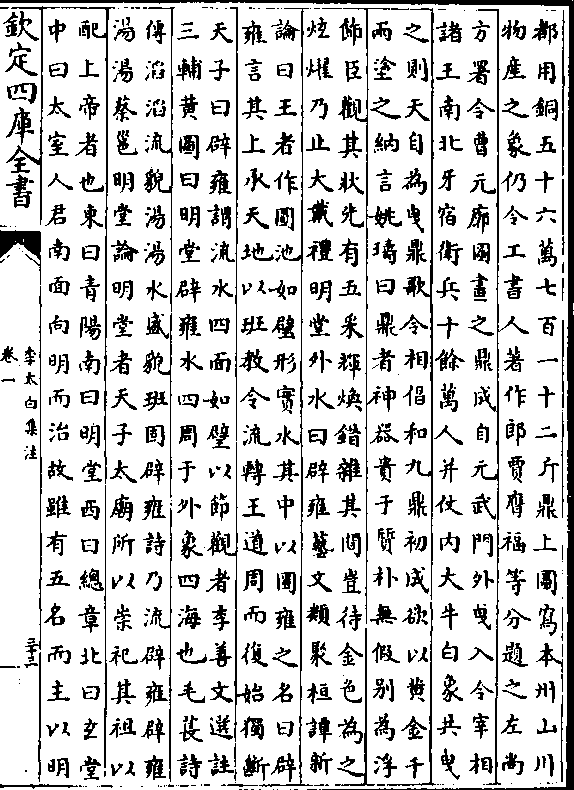 都用銅五十六萬七百一十二斤鼎上圖寫本州山川
物産之象仍令工書人著作郎賈膺福等分題之左尚
方署令曹元廓圖畫之鼎成自元武門外曳入令宰相
諸王南北牙宿衛兵十餘萬人并仗内大牛白象共曳
之則天自為曳鼎歌令相倡和九鼎初成欲以黄金千
兩塗之納言姚璹曰鼎者神器貴于質朴無假别為浮
飾臣觀其狀先有五采輝煥錯雜其間豈待金色為之
炫燿乃止大戴禮明堂外水曰辟雍藝文類聚桓譚新
論曰王者作圜池如璧形實水其中以圜雍之名曰辟
雍言其上承天地以班教令流轉王道周而復始獨斷
天子曰辟雍謂流水四面如璧以節觀者李善文選註
三輔黄圖曰明堂辟雍水四周于外象四海也毛萇詩
傳滔滔流貌湯湯水盛貌班固辟雍詩乃流辟雍辟雍
湯湯蔡邕明堂論明堂者天子太廟所以崇祀其祖以
配上帝者也東曰青陽南曰明堂西曰總章北曰玄堂
中曰太室人君南面向明而治故雖有五名而主以明
欽定四庫全書
李太白集注
卷一
三十三